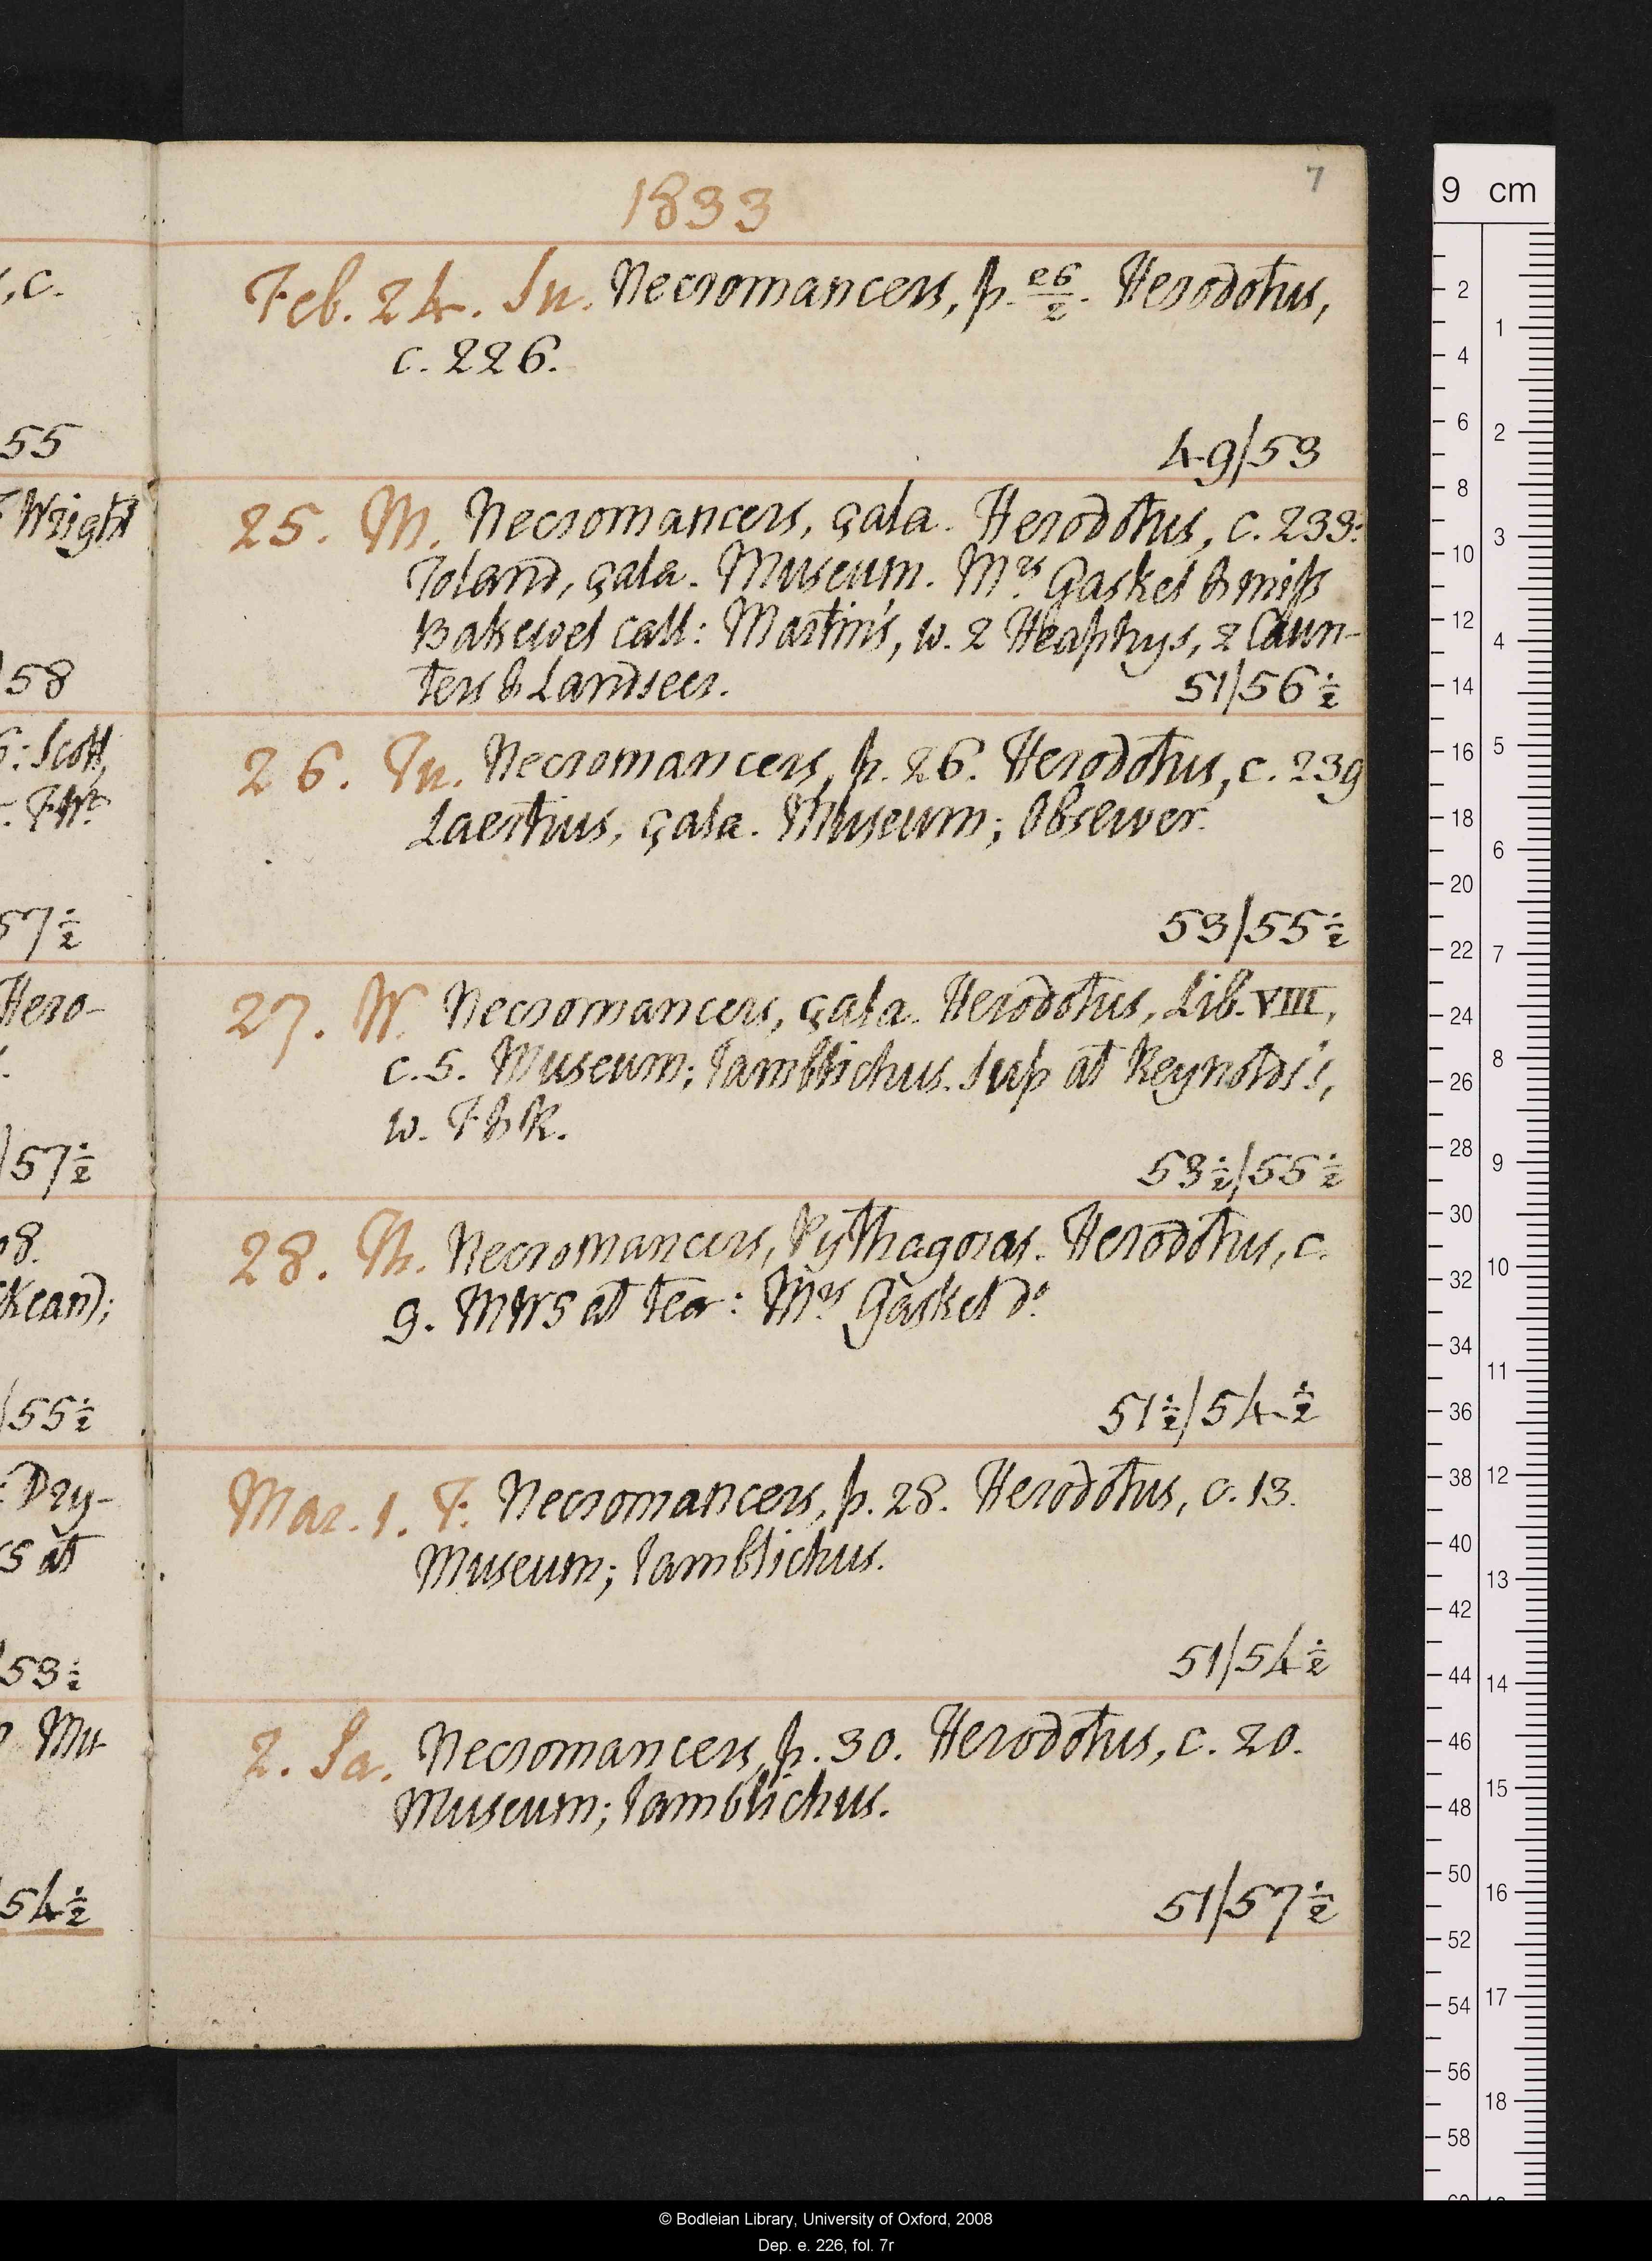 7
1833
Feb. 24. Su. Necromancers, p. 26/2. Herodotus,
c. 226.
49/53
25. M. Necromancers, çala. Herodotus, c. 233:
Toland, çala. Museum. Mrs Gaskel & miss
Bakewel call: Martin's, w. 2 Heaphys, 2 Caun-
ters & Landseer. 51/56½
26. Tu. Necromancers, p. 26. Herodotus, c. 239
Laertius, çala. Museum; Observer.
53/55½
27. W. Necromancers, çala. Herodotus, Lib. VIII,
c. 5. Museum; Iamblichus. Sup at Reynolds's,
w. F & K.
53½/55½
28. Th. Necromancers, Pythagoras. Herodotus, c.
9. MWS at tea: Mrs Gaskel do
51½/54½
Mar. 1. F. Necromancers, p. 28. Herodotus, c. 13.
Museum; Iamblichus.
51/54½
2. Sa. Necromancers, p. 30. Herodotus, c. 20.
Museum; Iamblichus.
51/57½
, c.
55
Wright
58
: Scott,
57½
Hero-
57½
Kean);
55½
Dry-
S at
53½
Mu
54½
9 cm
2
4
6
8
10
12
14
16
18
20
22
24
26
28
30
32
34
36
38
40
42
44
46
48
50
52
54
56
58
1
2
3
4
5
6
7
8
9
10
11
12
13
14
15
16
17
18
© Bodleian Library, University of Oxford, 2008
Dep. e. 226, fol. 7r